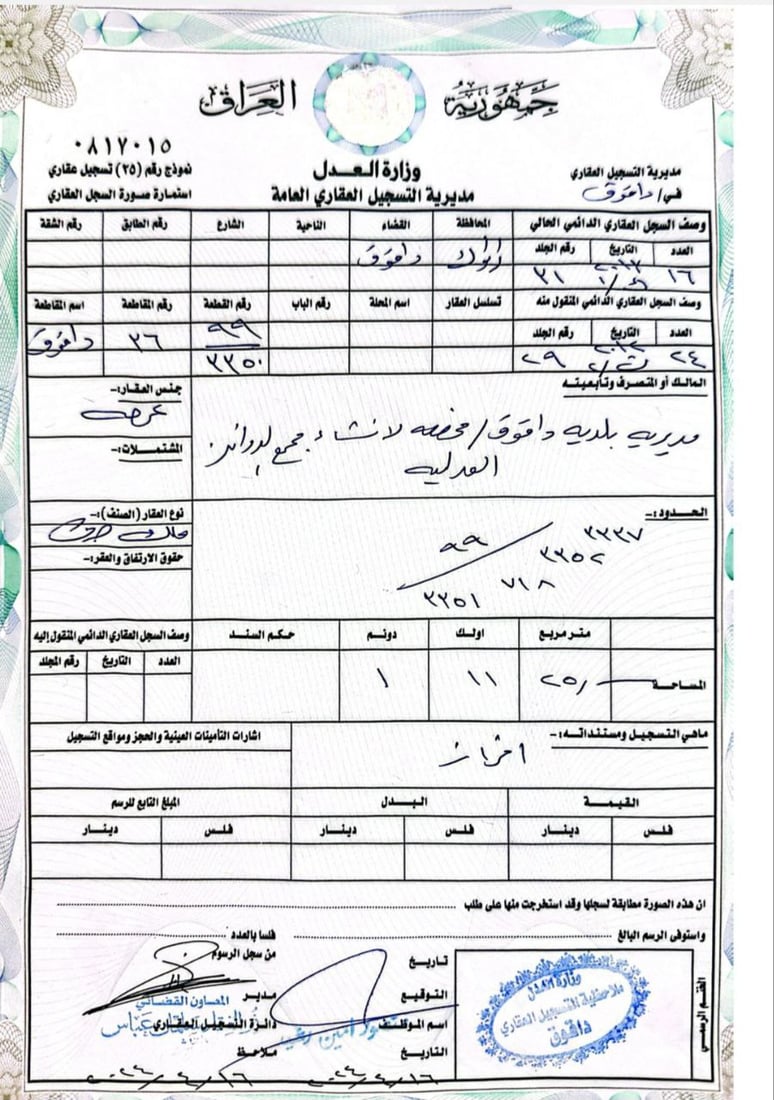 جمهورية العراق
٠٨١٧٠١٥
وزارة العدل
مديرية التسجيل العقاري العامة
مديرية التسجيل العقاري
في/ داقوق
نموذج رقم (٢٥) تسجيل عقاري
استمارة صورة السجل العقاري
وصف السجل العقاري الدائمي الحالي المحافظة القضاء الناحية الشارع رقم الطابق رقم الشقة
العدد التاريخ رقم الجلد
١٦ ٢٠١٣ ٣١ داقوق
وصف السجل العقاري الدائمي المنقول منه تسلسل العقار اسم المحلة رقم الباب رقم القطعة رقم المقاطعة اسم المقاطعة
العدد التاريخ رقم الجلد
٢٤ ٢٩ ٩٩ ٣٦ داقوق
٣٣٥٠
المالك أو المتصرف وتأبعيته
مديرية بلدية داقوق / مخصصه لانشاء مجمع لدوائر
العدلية
جنس العقار:-
عرصه
المشتملات:-
الحدود:-
٣٣٣٧
٩٩ ٣٣٥٢
٧١٨
٣٣٥١
نوع العقار (الصنف):-
ملك صرف
حقوق الارتفاق والعقر:-
متر مربع اولك دونم حكم السند وصف السجل العقاري الدائمي المنقول إليه
العدد التاريخ رقم المجلد
المساحة ٢٥/ ١١ ١
ماهي التسجيل ومستنداته:-
افراز
اشارات التأمينات العينية والحجز ومواقع التسجيل
القيمة البدل المبلغ التابع للرسم
فلس دينار فلس دينار فلس دينار
ان هذه الصورة مطابقة لسجلها وقد استخرجت منها على طلب
واستوفى الرسم البالغ فلسا بالعدد
من سجل الرسوم
تاريخ
التوقيع
اسم الموظف
التاريخ
مدير
دائرة التسجيل العقاري
ملاحظ
المعاون القضائي
عباس
امين
٢٠٢٤/٤/١٦
٢٠٢٤/٤/١٦
الختم الرسمي
وزارة العدل
ملاحظية التسجيل العقاري
داقوق